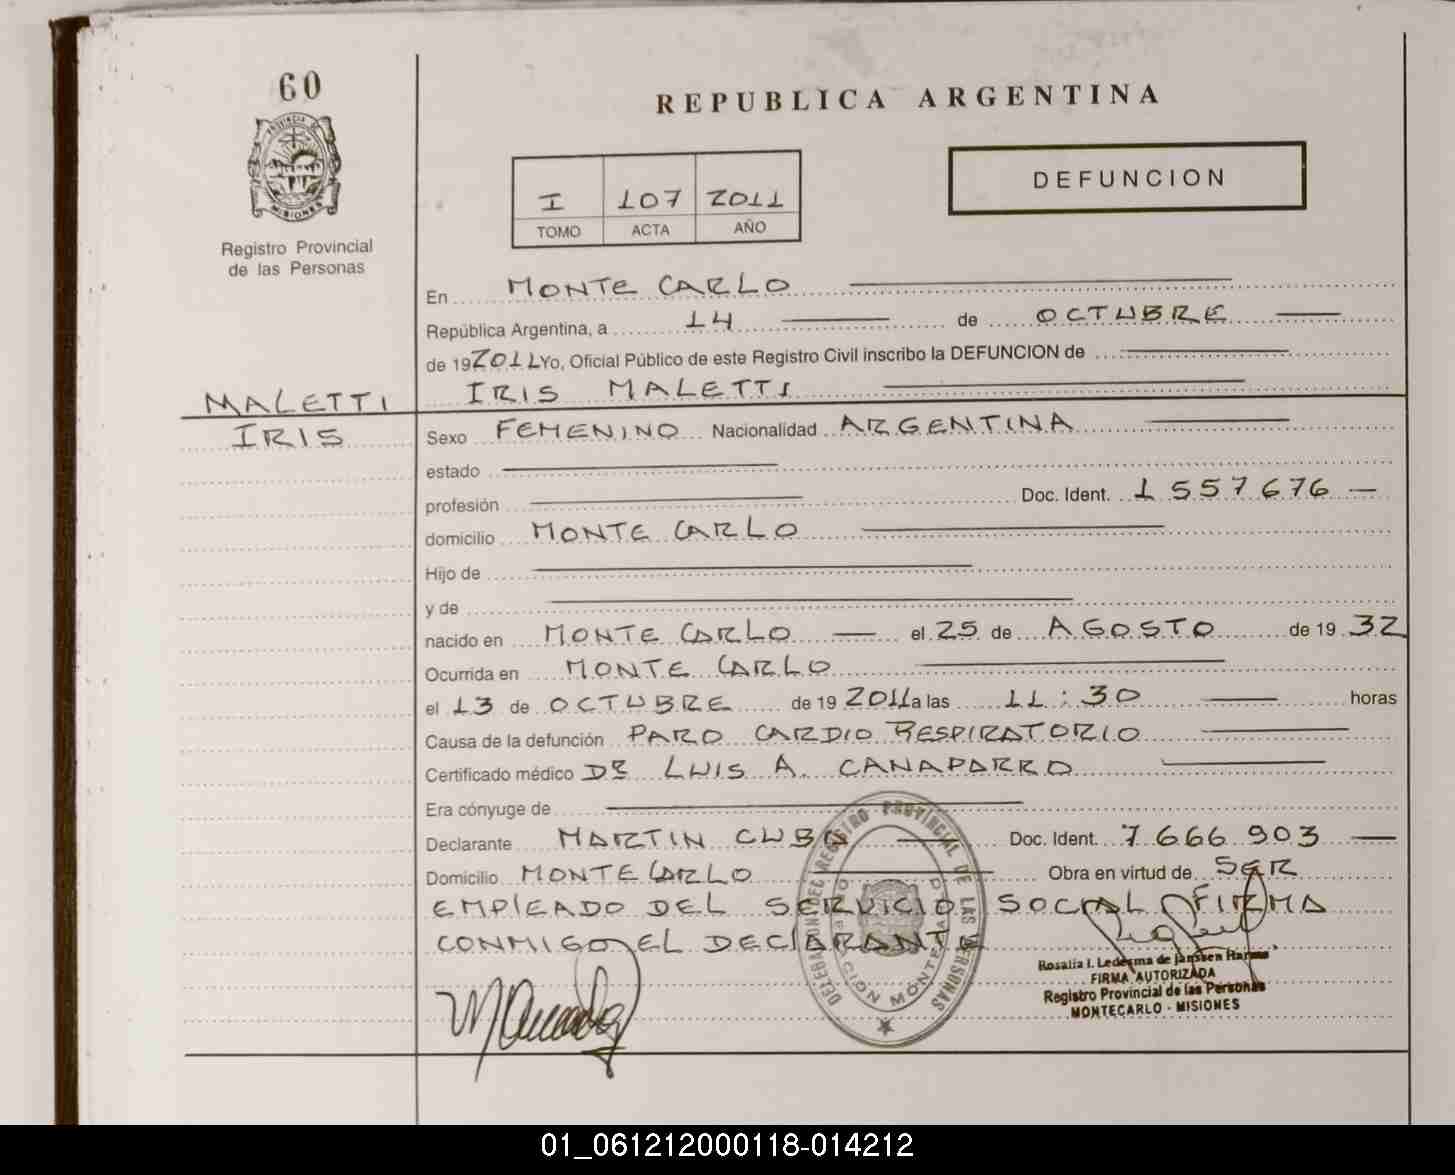 60
REPUBLICA ARGENTINA
PROVINCIA DE
MISIONES
Registro Provincial
de las Personas
DEFUNCION
I 107 2011
TOMO ACTA AÑO
En MONTE CARLO
República Argentina, a 14 de OCTUBRE
de 192011 Yo, Oficial Público de este Registro Civil inscribo la DEFUNCION de
IRIS MALETTI
MALETTI
IRIS
Sexo FEMENINO Nacionalidad ARGENTINA
estado
profesión Doc. Ident. 1 557 676
domicilio MONTE CARLO
Hijo de
y de
nacido en MONTE CARLO el 25 de AGOSTO de 19 32
Ocurrida en MONTE CARLO
el 13 de OCTUBRE de 19 2011 a las 11:30 horas
Causa de la defunción PARO CARDIO RESPIRATORIO
Certificado médico DR LUIS A. CANAPARRO
Era cónyuge de
Declarante MARTIN CUBA Doc. Ident. 7 666 903
Domicilio MONTE CARLO Obra en virtud de SER
EMPlEADO DEL SERVICIO SOCIAL FIRMA
CONMIGO EL DEClARANTE
REGISTRO PROVINCIAL DE LAS PERSONAS
Rosalía I. Ledesma de Janssen Harms
FIRMA AUTORIZADA
Registro Provincial de las Personas
MONTECARLO - MISIONES
01_061212000118-014212